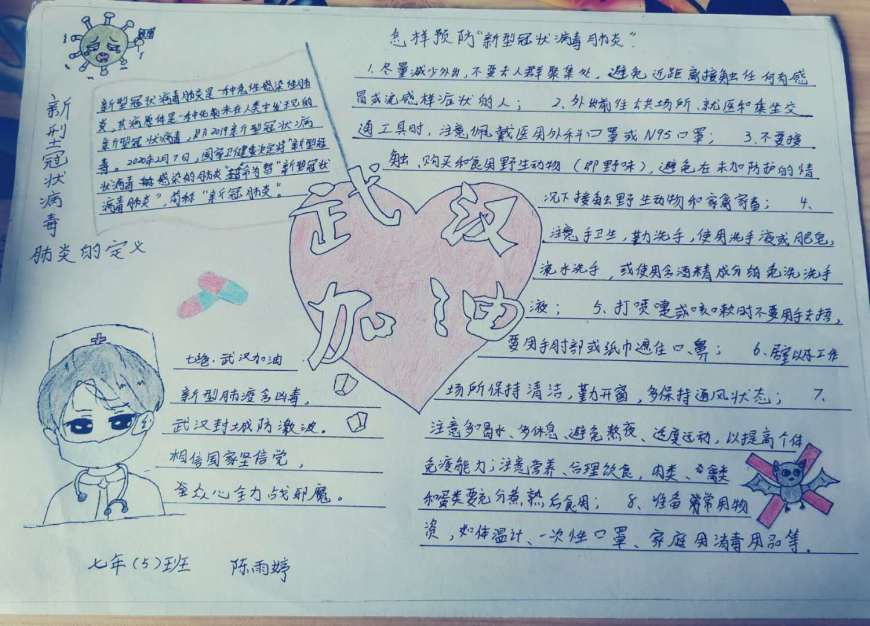 新型冠状病毒
肺炎的定义
新型冠状病毒肺炎是一种急性感染性肺
炎,其病原体是一种先前未在人类中发现的
新型冠状病毒,即2019新型冠状病
毒。2020年2月7日,国家卫健委决定将"新型冠
状病毒感染的肺炎暂命名为"新型冠状
病毒肺炎",简称"新冠肺炎"。
武汉
加油
七绝·武汉加油
新型肺疫含凶毒,
武汉封城防激波。
相信国家坚信党,
全众心全力战邪魔。
七年(5)班 陈雨婷
怎样预防"新型冠状病毒肺炎".
1.尽量减少外出,不要去人群聚集处,避免近距离接触任何有感
冒或流感样症状的人; 2.外出前往公共场所、就医和乘坐交
通工具时,注意佩戴医用外科口罩或N95口罩; 3.不要接
触、购买和食用野生动物(即野味),避免在未加防护的情
况下接触野生动物和家禽家畜; 4.
注意手卫生,勤洗手,使用洗手液或肥皂,
流水洗手,或使用含酒精成分的免洗洗手
液; 5、打喷嚏或咳嗽时不要用手去捂,
要用手肘部或纸巾遮住口、鼻; 6、居室以及工作
场所保持清洁,勤开窗,多保持通风状态; 7、
注意多喝水、多休息、避免熬夜、适度运动,以提高个体
免疫能力;注意营养、合理饮食,肉类、禽类
和蛋类要充分煮熟后食用; 8、准备常用物
资,如体温计、一次性口罩、家庭用消毒用品等.